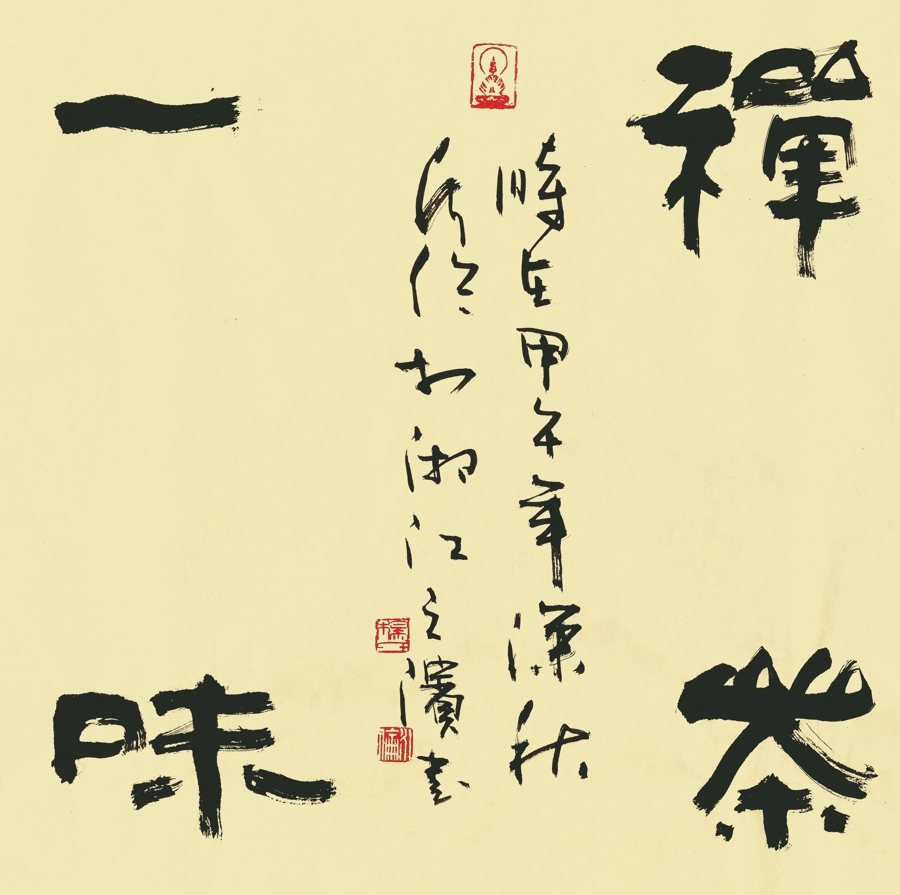 禪茶
一味
時在甲午年深秋
於湘江之濱書